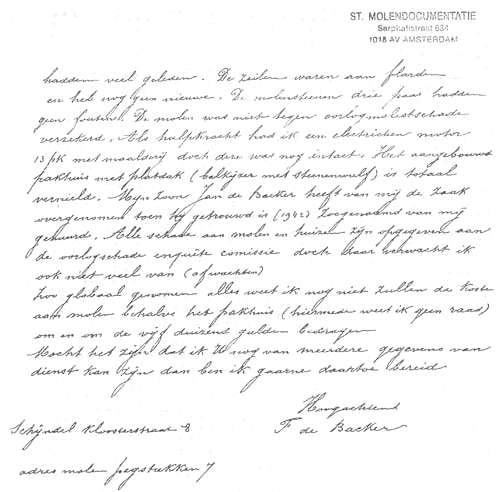 ST. MOLENDOCUMENTATIE
Sarphatistraat 634
1018 AV AMSTERDAM
hadden veel geleden. De zeilen waren aan flarden
en heb nog geen nieuwe. De molensteenen drie paar hadden
geen fouten. De molen was niet tegen oorlogmolestschade
verzekerd. Als hulpkracht had ik een electrischen motor
13 pk met maalderij doch deze was nog intact. Het aangebouwd
pakhuis met platdak (balkijzer met steenenwelf) is totaal
vernield. Mijn zoon Jan de Backer heeft van mij de zaak
overgenomen toen hij getrouwd is (1942) Zoogenaamd van mij
gehuurd. Alle schade aan molen en huizen zijn opgegeven aan
de oorlogschade enquête comissie doch daar verwacht ik
ook niet veel van (afwachten)
Zoo globaal genomen alles weet ik nog niet zullen de kosten
aan molen behalve het pakhuis (hiermede weet ik geen raad)
om en om de vijf duizend gulden bedragen
Mocht het zijn dat ik U nog van meerdere gegevens van
dienst kan zijn dan ben ik gaarne daartoe bereid
Hoogachtend
Schijndel Kloosterstraat 8
F de Backer
adres molen 7